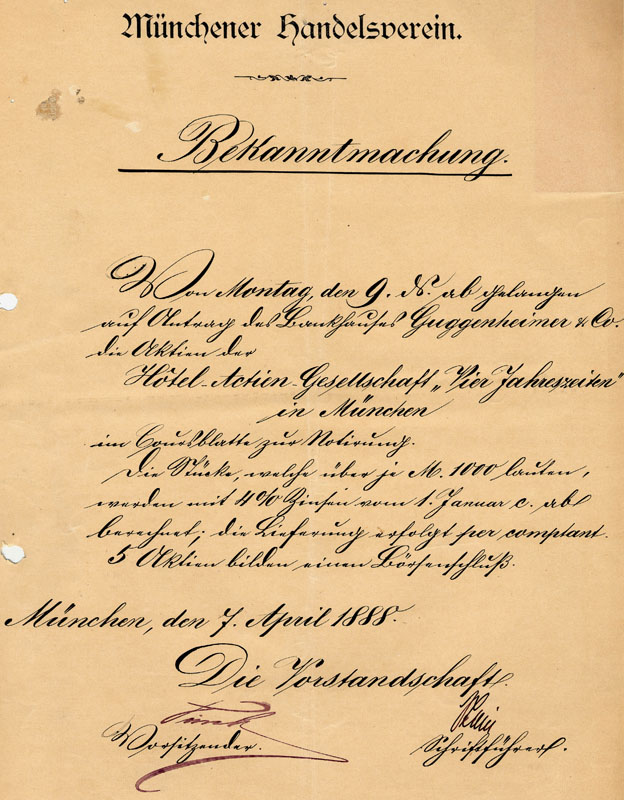 Münchener Handelsverein.
Bekanntmachung.
Von Montag, den 9. ds ab gelangen
auf Antrag des Bankhauses Guggenheimer & Co.
die Aktien der
Hôtel-Actien-Gesellschaft „Vier Jahreszeiten"
in München
im Coursblatte zur Notirung.
Die Stücke, welche über je M. 1000 lauten,
werden mit 4% Zinsen vom 1. Januar c. ab
berechnet; die Lieferung erfolgt per comptant.
5 Aktien bilden einen Börsenschluß.
München, den 7. April 1888.
Die Vorstandschaft.
Vorsitzender.
Schriftführer.